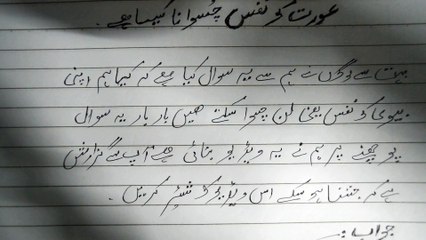 عورت کو نفس چسوانا کیسا ہے.
بہت سے لوگوں نے ہم سے یہ سوال کیا ہے کہ کیا ہم اپنی
بیوی کو نفس یعنی لن چسوا سکتے ھیں بار بار یہ سوال
پوچھنے پر ہم نے یہ ویڈیو بنائی ہے آپ سے گزارش
ہے کہ جتنا ہو سکے اس ویڈیو کو شئیر کریں.
جواب: